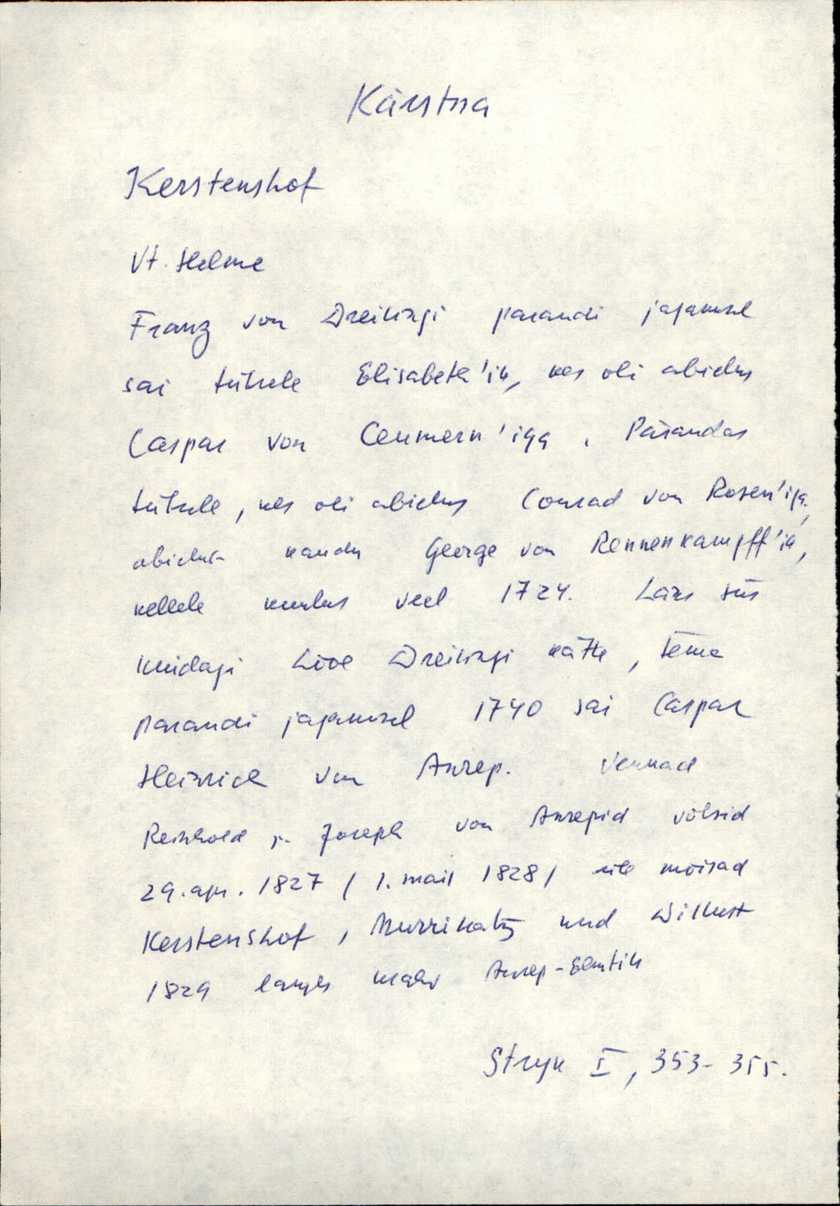 Kärstna
Kerstenshof
Vt. Helme
Franz von Dreilingi pärandi jagamisel
sai tütrele Elisabeth'ile, kes oli abielus
Caspar von Ceumern'iga. Pärandas
tütrele, kes oli abielus Conrad von Rosen'iga,
abielus George von Rennenkampff'ile,
kellele kuulus veel 1724. Läks siis
kuidagi Dreilingi kätte, tema
pärandi jagamisel 1740 sai Caspar
Heinrich von Anrep. Vennad
Reinhold j. Joseph von Anrepid võtsid
29. apr. 1827 / 1. mail 1828 / mõisad
Kerstenshof, Murrikatz und Willust
1829 Anrep-Elmtile
Stryk I, 353-355.